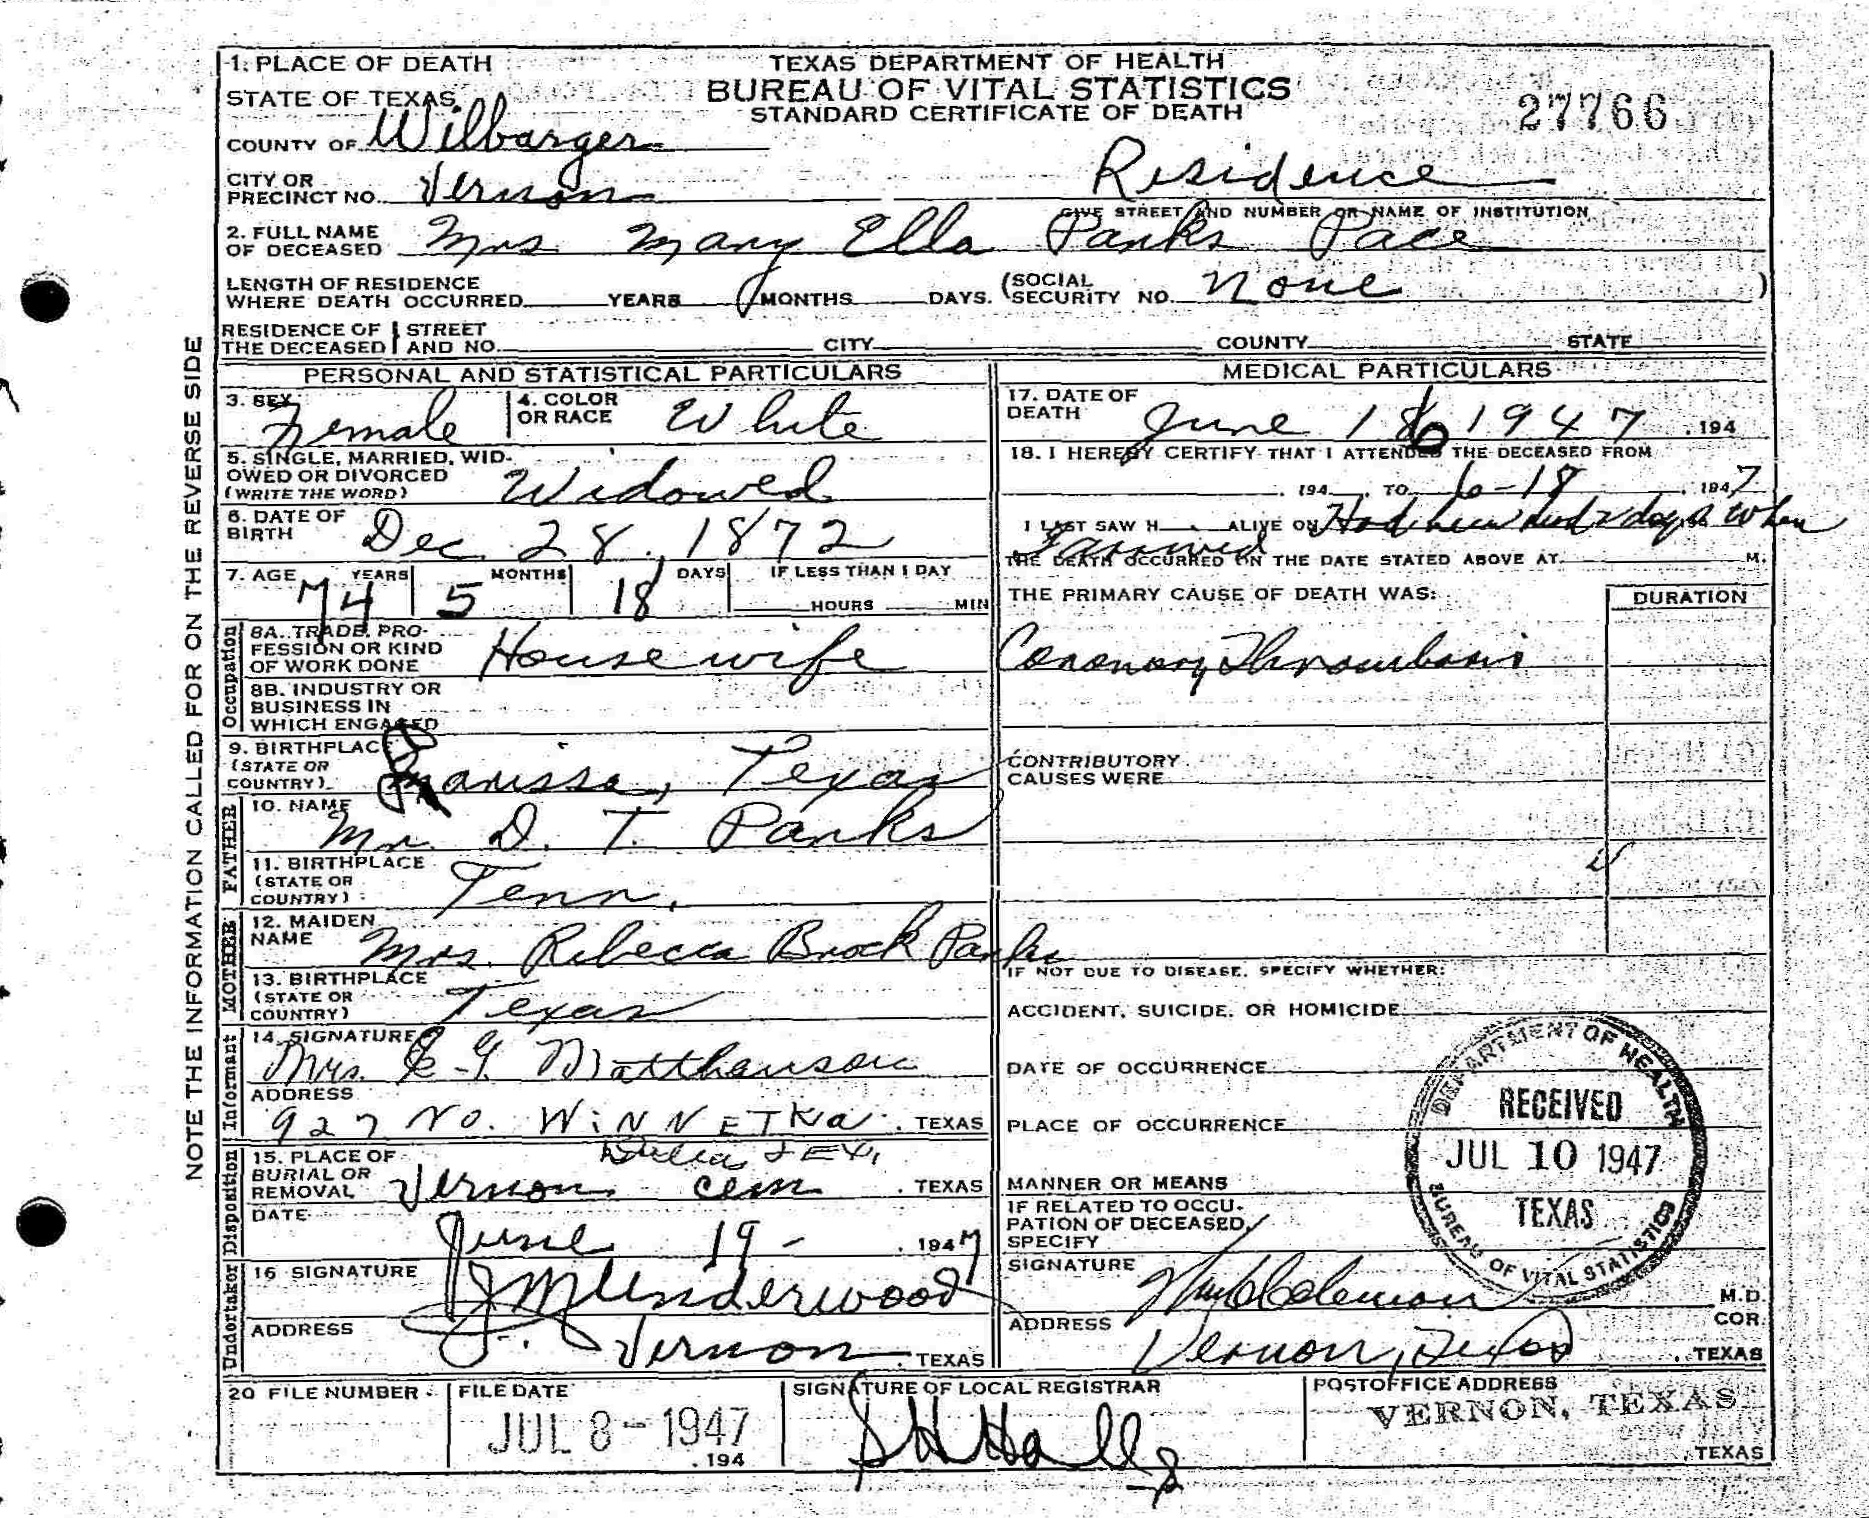 1. PLACE OF DEATH
STATE OF TEXAS
TEXAS DEPARTMENT OF HEALTH
BUREAU OF VITAL STATISTICS
STANDARD CERTIFICATE OF DEATH
27766
COUNTY OF Wilbarger
CITY OR PRECINCT NO. Vernon
Residence
GIVE STREET AND NUMBER OR NAME OF INSTITUTION
2. FULL NAME OF DECEASED Mrs Mary Ella Parks Pace
LENGTH OF RESIDENCE WHERE DEATH OCCURRED YEARS MONTHS DAYS. (SOCIAL SECURITY NO. None )
RESIDENCE OF THE DECEASED STREET AND NO. CITY COUNTY STATE
NOTE THE INFORMATION CALLED FOR ON THE REVERSE SIDE
PERSONAL AND STATISTICAL PARTICULARS
3. SEX Female
4. COLOR OR RACE White
5. SINGLE, MARRIED, WIDOWED OR DIVORCED (WRITE THE WORD) Widowed
6. DATE OF BIRTH Dec 28, 1872
7. AGE YEARS MONTHS DAYS IF LESS THAN 1 DAY
74 5 18 HOURS MIN
Occupation
8A. TRADE, PROFESSION OR KIND OF WORK DONE House wife
8B. INDUSTRY OR BUSINESS IN WHICH ENGAGED
9. BIRTHPLACE (STATE OR COUNTRY) Larissa, Texas
FATHER
10. NAME Mr. D. T. Parks
11. BIRTHPLACE (STATE OR COUNTRY) Tenn.
MOTHER
12. MAIDEN NAME Mrs. Ribecca Brock Parks
13. BIRTHPLACE (STATE OR COUNTRY) Texas
Informant
14. SIGNATURE Mrs. E. G. Matthewson
ADDRESS
927 No. WiNNETKa. TEXAS
Dallas, TEX.
Disposition
15. PLACE OF BURIAL OR REMOVAL Vernon cem. TEXAS
DATE June 19 - , 1947
Undertaker
16 SIGNATURE J M Underwood
ADDRESS Vernon. TEXAS
MEDICAL PARTICULARS
17. DATE OF DEATH June 16 1947 , 194
18. I HEREBY CERTIFY THAT I ATTENDED THE DECEASED FROM
, 194 , TO 6-18 , 1947
I LAST SAW H ALIVE ON Had been dead 2 days when
I arrived
THE DEATH OCCURRED ON THE DATE STATED ABOVE AT M.
THE PRIMARY CAUSE OF DEATH WAS: DURATION
Coronary Thrombosis
CONTRIBUTORY CAUSES WERE
IF NOT DUE TO DISEASE, SPECIFY WHETHER:
ACCIDENT, SUICIDE, OR HOMICIDE
DATE OF OCCURRENCE
PLACE OF OCCURRENCE
MANNER OR MEANS
IF RELATED TO OCCUPATION OF DECEASED, SPECIFY
SIGNATURE Coleman M.D.
COR.
ADDRESS Vernon, Texas . TEXAS
DEPARTMENT OF HEALTH
RECEIVED
JUL 10 1947
TEXAS
BUREAU OF VITAL STATISTICS
20 FILE NUMBER
FILE DATE
JUL 8 - 1947
, 194
SIGNATURE OF LOCAL REGISTRAR
S H Hall
POSTOFFICE ADDRESS
VERNON, TEXAS
, TEXAS